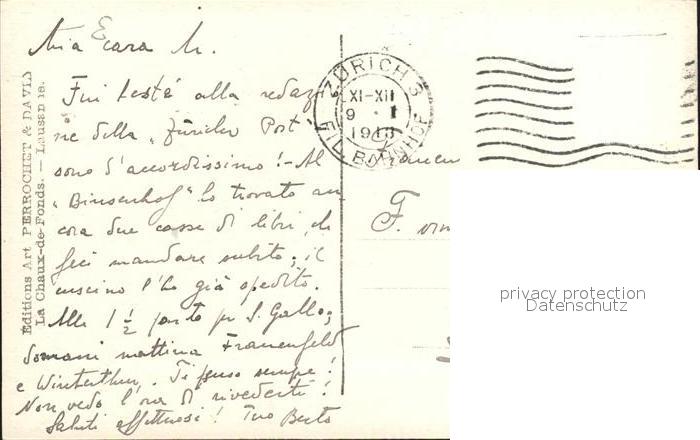 Mia cara M.
Fui testé alla redazio
ne della „Züricher Post"
sono d'accordissimo! - Al
„Binsenhof" ho trovato an
cora due casse di libri, che
feci mandare subito; il
cuscino l'ho già spedito.
Alle 1 ½ parto per S. Gallo;
domani mattina Frauenfeld
e Winterthur. Ti penso sempre!
Non vedo l'ora di rivederti!
Saluti affettuosi! Tuo Berto
Editions Art PERROCHET & DAVID
La Chaux-de-Fonds. — Lausanne.
ZÜRICH 3
XI-XII
9 I
1913
FIL. BAHNHOF
F.
privacy protection
Datenschutz